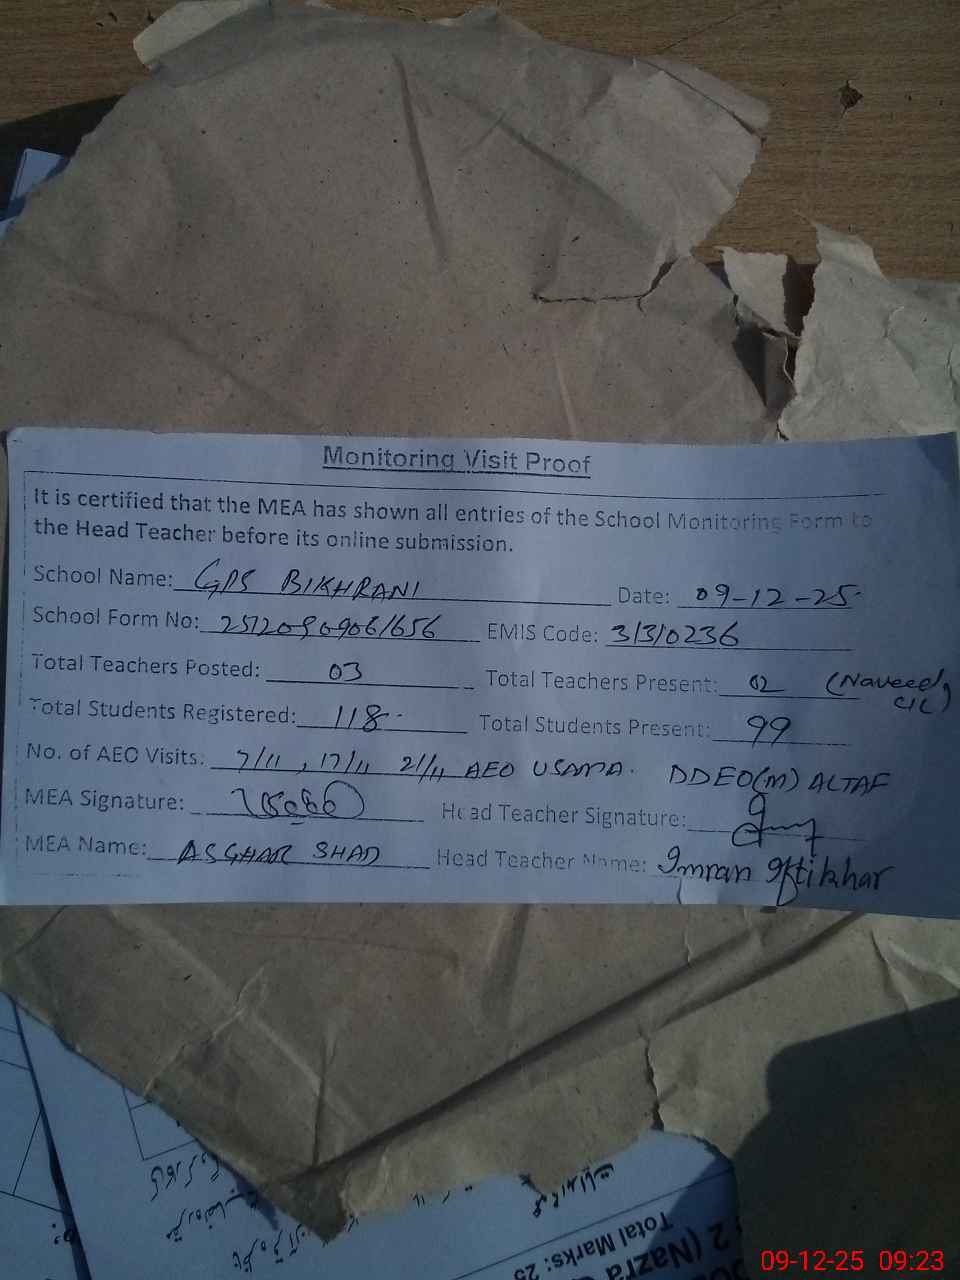 Monitoring Visit Proof
It is certified that the MEA has shown all entries of the School Monitoring Form to
the Head Teacher before its online submission.
School Name: GPS BIKHRANI Date: 09-12-25
School Form No: 25120909061656 EMIS Code: 31310236
Total Teachers Posted: 03 Total Teachers Present: 02 (Naveed, C/L)
Total Students Registered: 118 Total Students Present: 99
No. of AEO Visits: 7/11, 17/11 21/11 AEO USAMA. DDEO(M) ALTAF
MEA Signature: Head Teacher Signature:
MEA Name: ASGHAR SHAD Head Teacher Name: Imran Iftikhar
Total Marks: 25
2 (Nazra
09-12-25 09:23